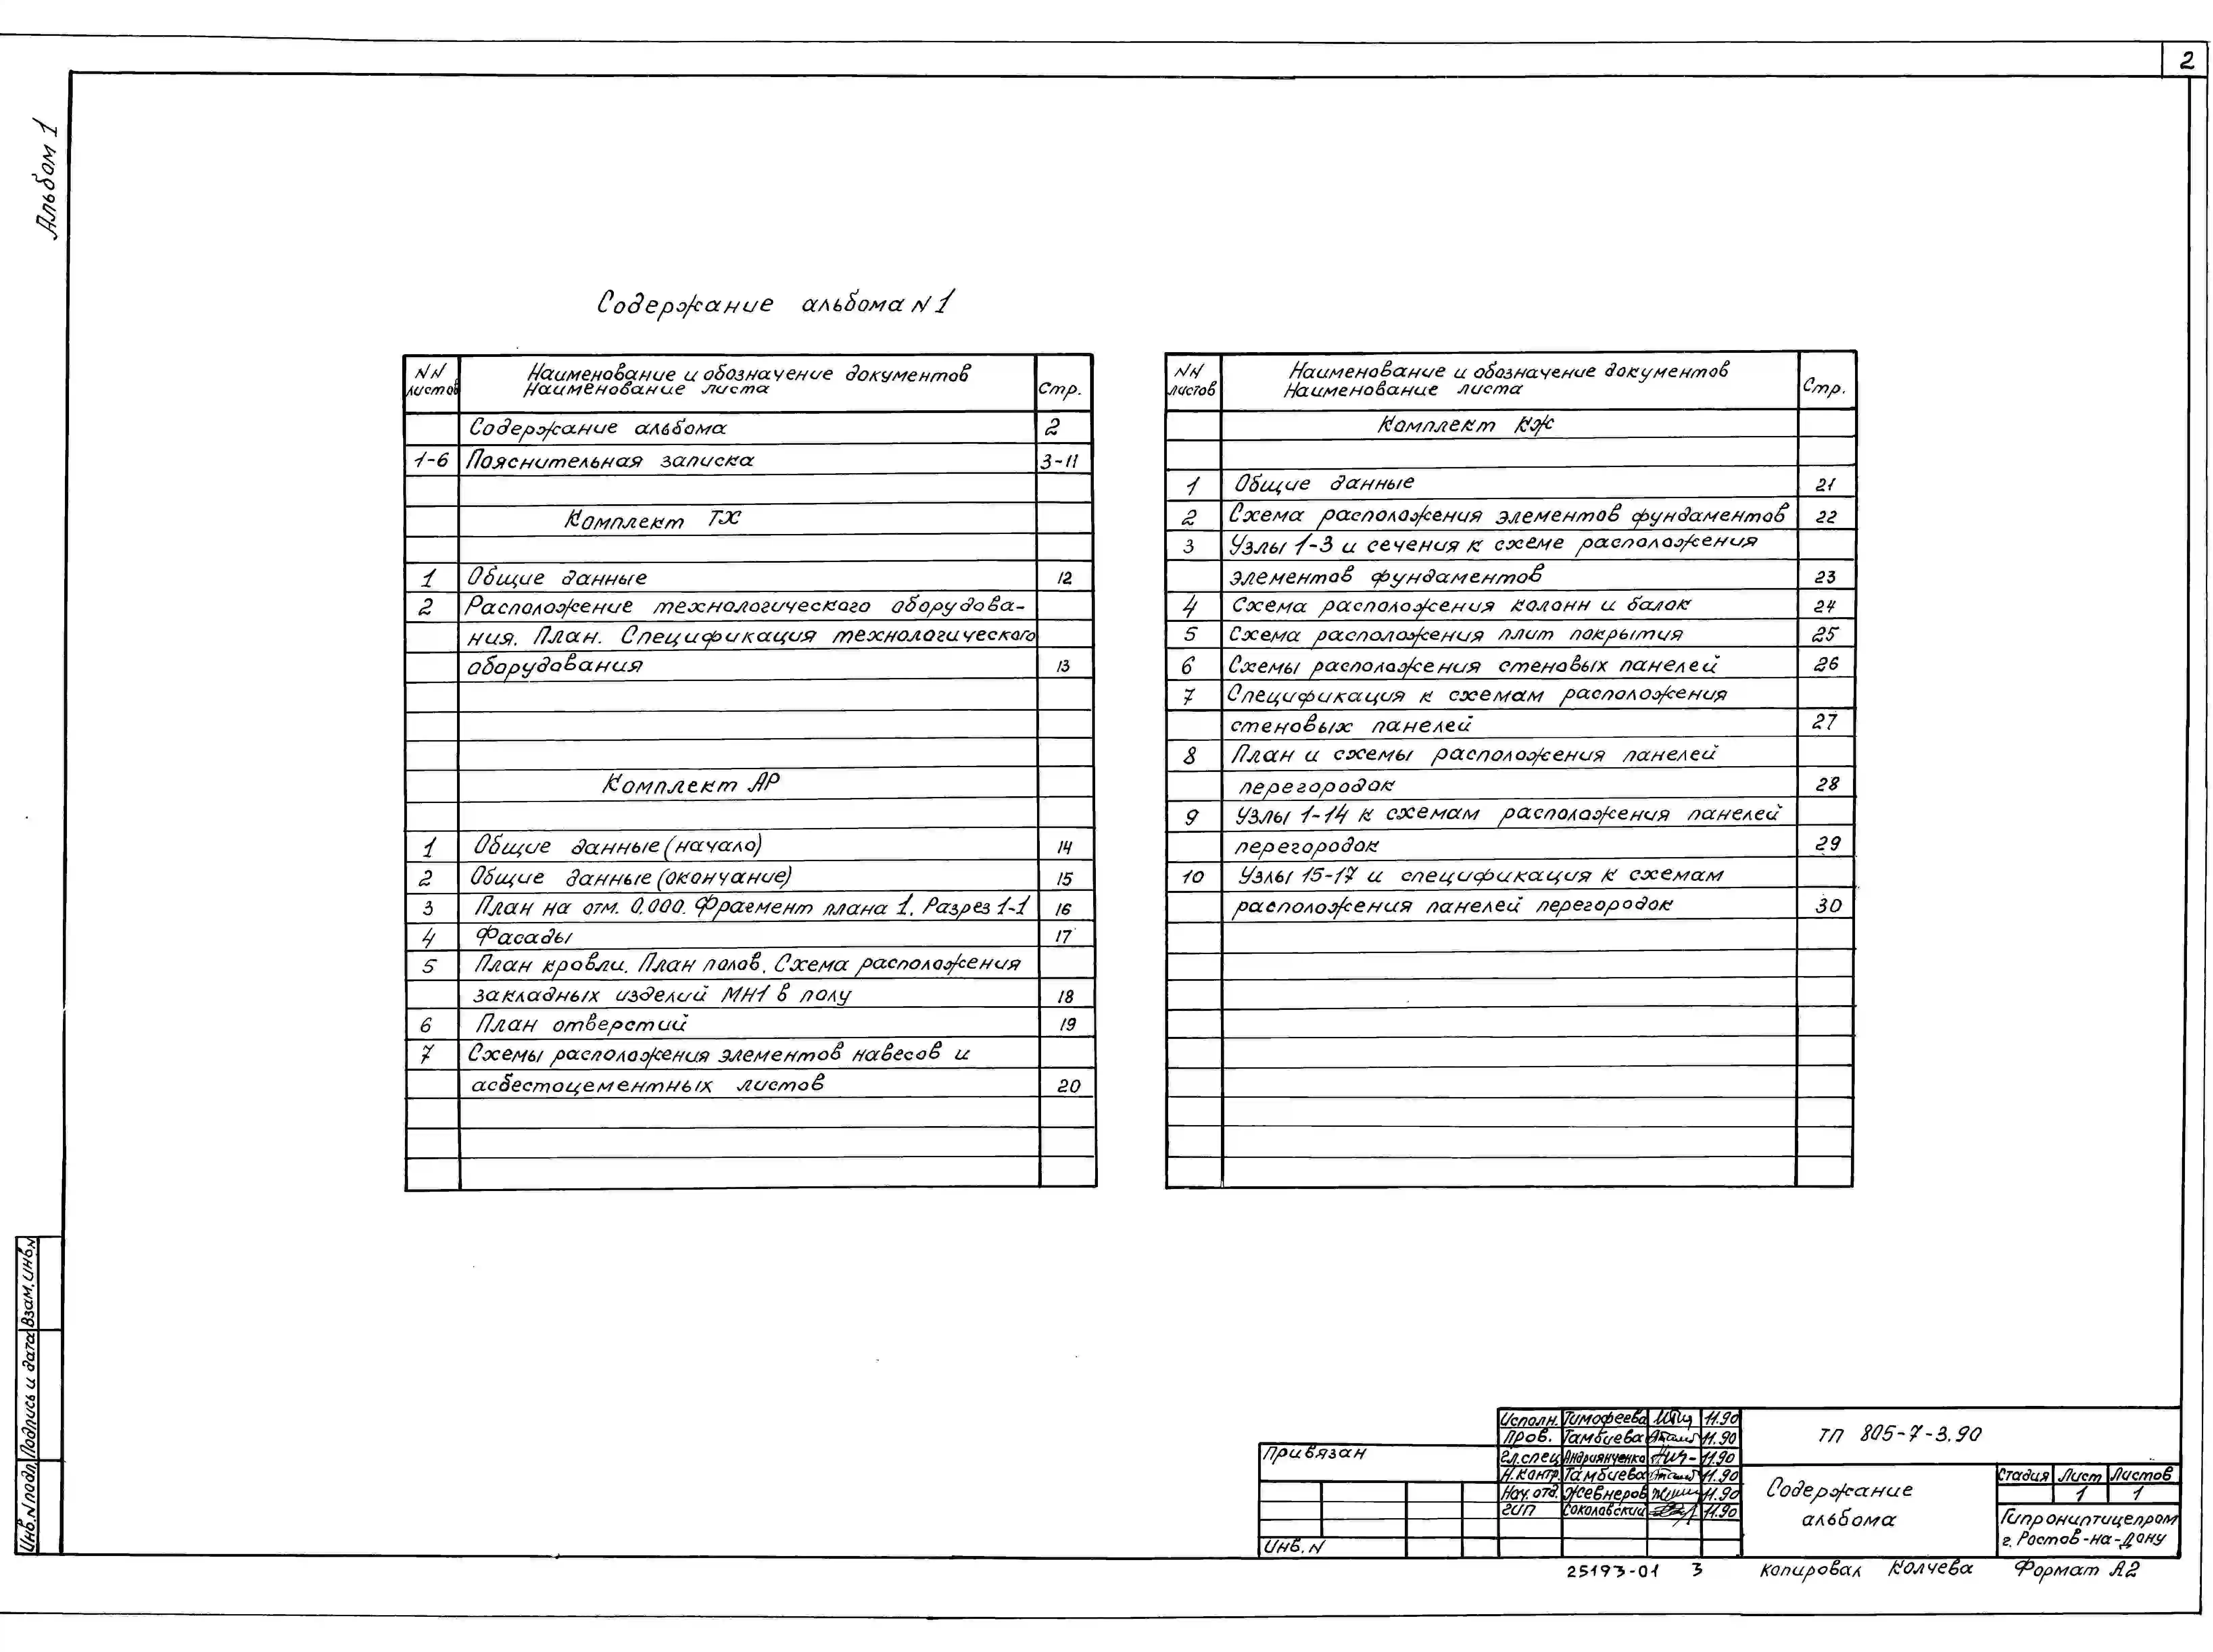 2
Альбом 1
Содержание альбома N 1
NN листов Наименование и обозначение документов Наименование листа Стр.
Содержание альбома 2
1-6 Пояснительная записка 3-11
Комплект ТХ
1 Общие данные 12
2 Расположение технологического оборудова-
ния. План. Спецификация технологического
оборудования 13
Комплект АР
1 Общие данные (начало) 14
2 Общие данные (окончание) 15
3 План на отм. 0.000. Фрагмент плана 1. Разрез 1-1 16
4 Фасады 17
5 План кровли. План полов. Схема расположения
закладных изделий МН1 в полу 18
6 План отверстий 19
7 Схемы расположения элементов навесов и
асбестоцементных листов 20
NN листов Наименование и обозначение документов Наименование листа Стр.
Комплект КЖ
1 Общие данные 21
2 Схема расположения элементов фундаментов 22
3 Узлы 1-3 и сечения к схеме расположения
элементов фундаментов 23
4 Схема расположения колонн и балок 24
5 Схема расположения плит покрытия 25
6 Схемы расположения стеновых панелей 26
7 Спецификация к схемам расположения
стеновых панелей 27
8 План и схемы расположения панелей
перегородок 28
9 Узлы 1-14 к схемам расположения панелей
перегородок 29
10 Узлы 15-17 и спецификация к схемам
расположения панелей перегородок 30
Взам. инв. N
Подпись и дата
Инв. N подл.
Привязан
Инв. N
Исполн. Тимофеева 11.90
Пров. Тамбиева 11.90
Гл.спец Андриянченко 11.90
Н.контр. Тамбиева 11.90
Нач. отд. Жевнеров 11.90
ГИП Соколовский 11.90
ТП 805-7-3.90
Содержание
альбома
Стадия Лист Листов
1 1
Гипрониптицепром
г. Ростов-на-Дону
25193-01 3 Копировал Колчева Формат А2